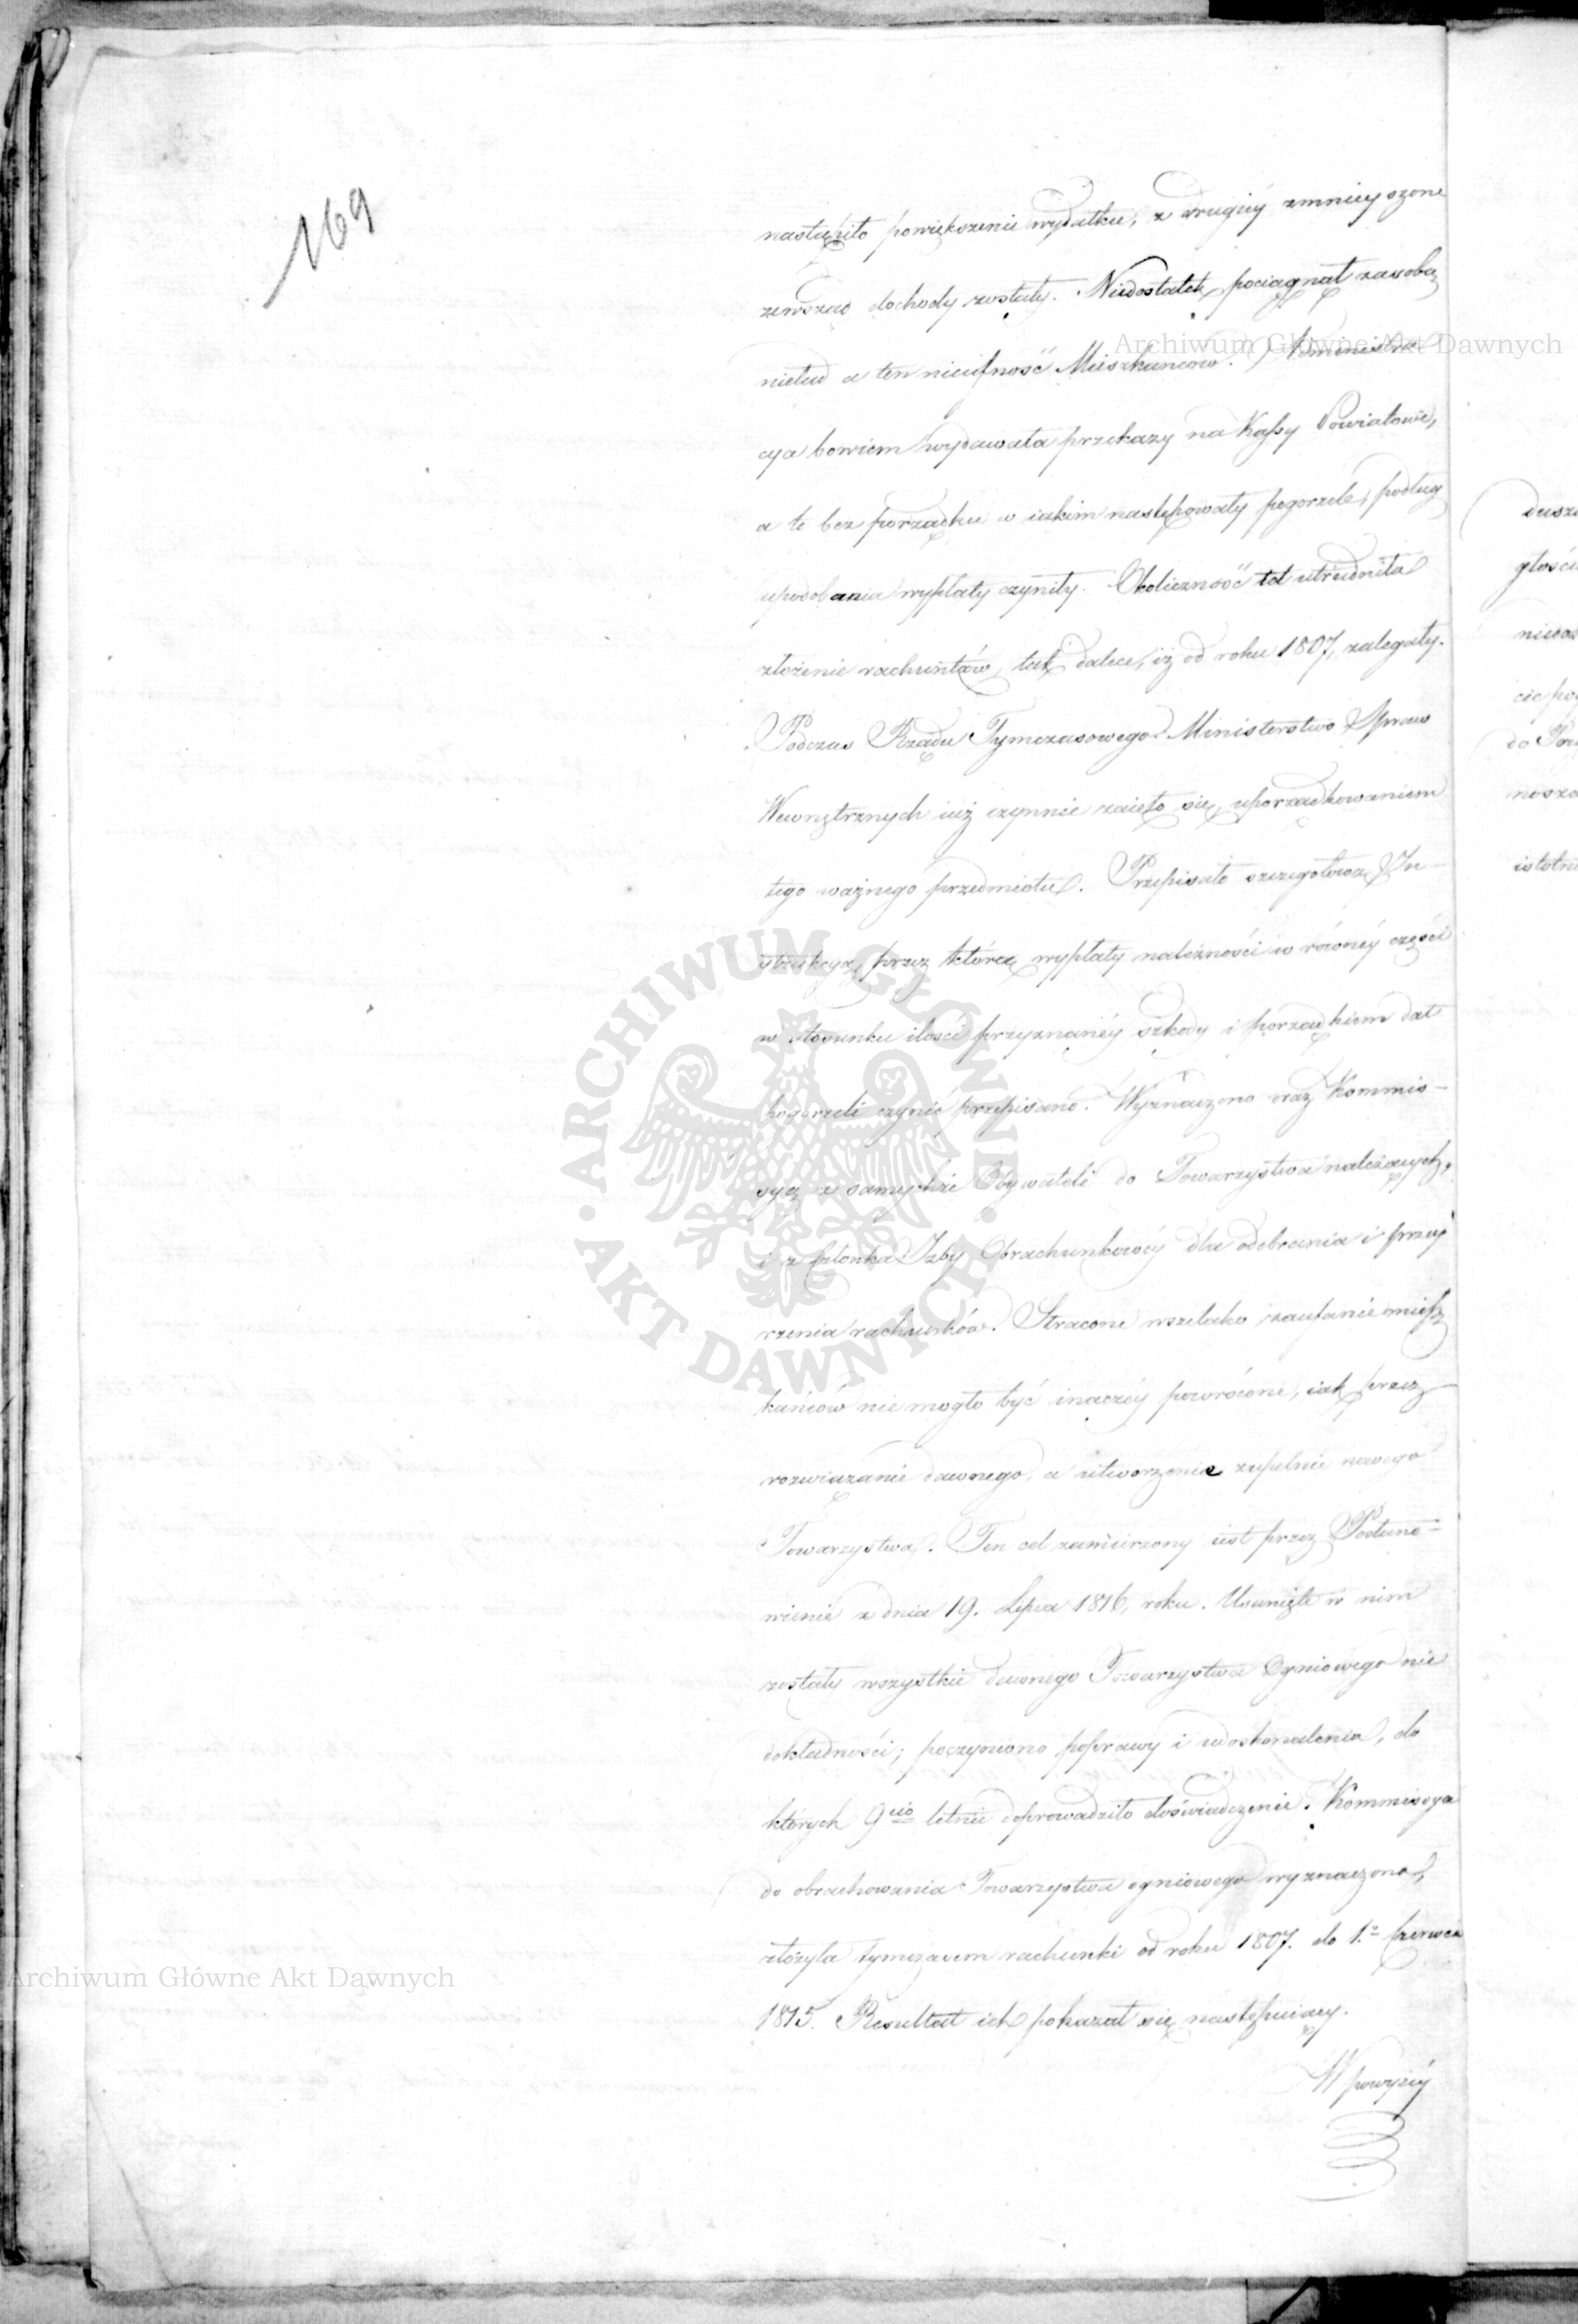 169
nastąpiło powiększenie wydatku, z drugiéy zmnieyszone
zewsząd dochody zostały. Niedostatek pociągnął za sobą
nieład a ten nieufność Mieszkańców. Administra
cya bowiem wydawała przekazy na Kassy Powiatowe,
a te bez porządku w iakim następowały pogorzele, podług
upodobania wypłaty czyniły. Okoliczność ta utrudniła
złożenie rachunków tak dalece, iż od roku 1807, zalegały.
Podczas Rządu Tymczasowego Ministerstwo Spraw
Wewnętrznych iuż czynnie zaięło się uporządkowaniem
tego ważnego przedmiotu. Przepisało szczegółową In-
strukcyą, przez którą wypłaty należności w równéy części
w stosunku ilości przyznanéy szkody i porządkiem dat
pogorzeli czynić przepisano. Wyznaczono oraz Kommis-
syą z samychże Obywateli do Towarzystwa należących,
i z Członka Izby Obrachunkowéy dla odebrania i przey
rzenia rachunków. Stracone wszelako zaufanie miesz
kańców nie mogło być inaczéy powrócone, iak przez
rozwiązanie dawnego, a utworzenie zupełnie nowego
Towarzystwa. Ten cel zamierzony iest przez Postano-
wienie z dnia 19. Lipca 1816, roku. Usunięte w nim
zostały wszystkie dawnego Towarzystwa Ogniowego nie
dokładności; poczyniono poprawy i udoskonalenia, do
których 9cio letnie doprowadziło doświadczenie. Kommissya
do obrachowania Towarzystwa ogniowego wyznaczona,
złożyła tymczasem rachunki od roku 1807. do 1. Czerwca
1815. Resultat ich pokazał się następuiący.
W powyżéy
dusz
głości
niedos
cie po
do
nosz
istotn
Archiwum Główne Akt Dawnych
ARCHIWUM GŁÓWNE · AKT DAWNYCH ·
Archiwum Główne Akt Dawnych